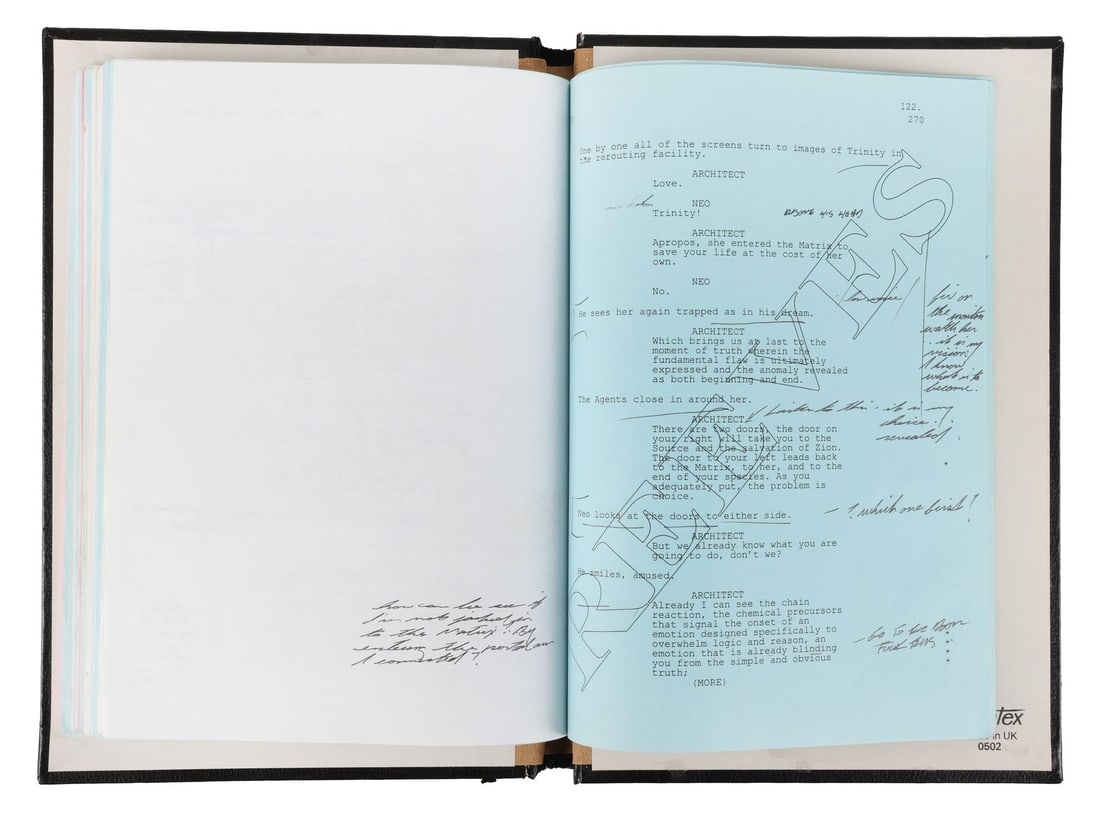 how can he see if
I'm not jacked in
to the Matrix? By
entering the portal am
I connected?
122.
270
One by one all of the screens turn to images of Trinity in
the rerouting facility.
ARCHITECT
Love.
NEO
Trinity!
ARCHITECT
Apropos, she entered the Matrix to
save your life at the cost of her
own.
NEO
No.
He sees her again trapped as in his dream.
fix on
the monitor
watch her
it is my
vision!
I know
what is to
become.
ARCHITECT
Which brings us at last to the
moment of truth wherein the
fundamental flaw is ultimately
expressed and the anomaly revealed
as both beginning and end.
The Agents close in around her.
Listen to this it is my
choice!
revealed.
ARCHITECT
There are two doors, the door on
your right will take you to the
Source and the salvation of Zion.
The door to your left leads back
to the Matrix, to her, and to the
end of your species. As you
adequately put, the problem is
choice.
Neo looks at the doors to either side.
- ? which one first?
ARCHITECT
But we already know what you are
going to do, don't we?
He smiles, amused.
ARCHITECT
Already I can see the chain
reaction, the chemical precursors
that signal the onset of an
emotion designed specifically to
overwhelm logic and reason, an
emotion that is already blinding
you from the simple and obvious
truth;
- Go To the Door
Fuck this
(MORE)
REEVES
tex
in UK
0502